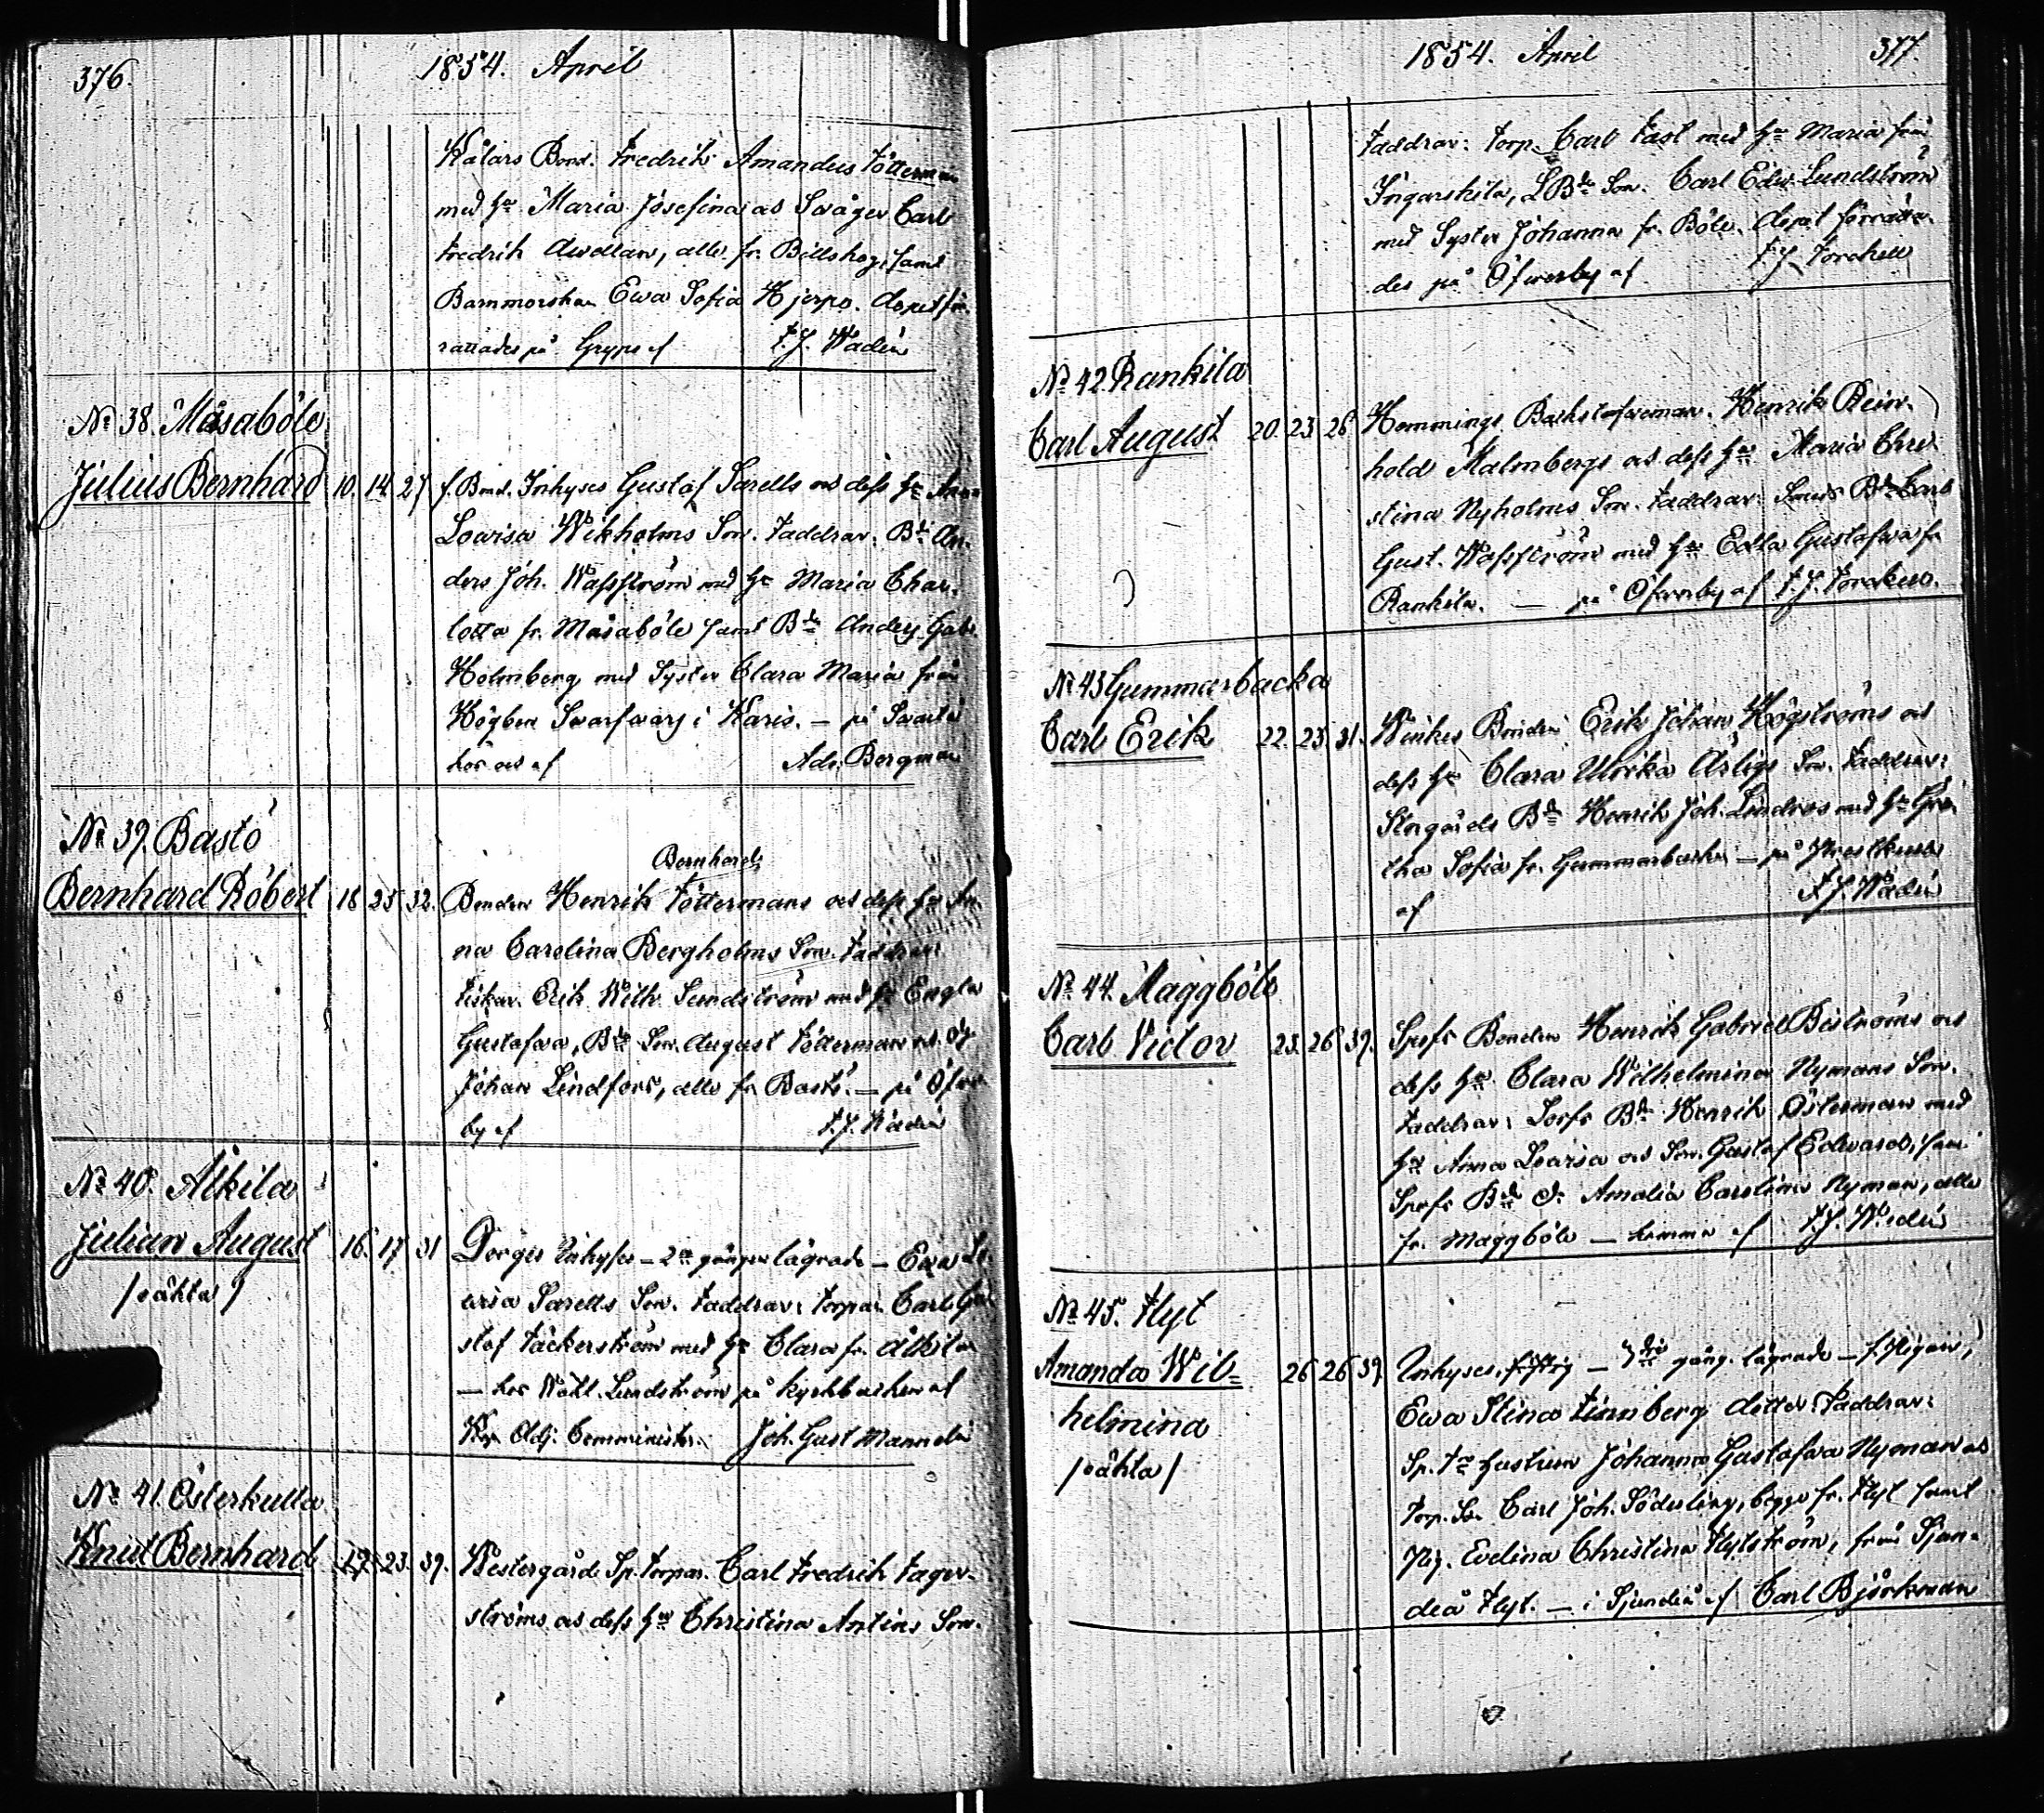 376.
1854. April
Wålars Bond. Fredrik Amandus Fötterman
med hu Maria Josefina as Swåger Carl
Fredrik alle fr. Billskog, samt
Barnmorskan Ewa Sofia Hjerpe. Dopet för-
rättades på af F. J. Wadén
No 38. Måsaböle
Julius Bernhard 10. 14. 27
f. Bond. Inhyses Gustaf Sarells as dess hu Anna
Lovisa Wikholms Son. Faddrar: Bd An-
ders Joh. Wassström med hu Maria Char-
lotta fr. Måsaböle samt Bd Anders Gabr.
Holmberg med Syster Clara Maria från
Högben Swartwarf i Karis. — på Swartå
hos as af Ad. Bergman
No 39. Bastö
Bernhard Robert 18 25 32.
Bernhard
Bonden Henrik Föttermans as dess hu An-
na Carolina Bergholms Son. Faddrar:
Fiskar. Erik Wilh. Sundström med hu Engla
Gustafva, Bd Son. August Fötterman as
Johan Lindfors, alle fr. Bastö. — på Öfver-
by af F. J. Wadén
No 40. Alkila
Julian August 16. 17 31
/oäkta/
Dorgis Inhyses — 2a gången lägrade — Ewa Lo-
visa Sarells Son. Faddrar: Torpar. Carl Gu-
staf Täckerström med hu Clara fr. Alkila
— hos Lundström på Kyrkbacken af
Adj. Comminister. Joh. Gust Mannelin
No 41. Österkulla
Knut Bernhard 19. 23. 39.
Westergårds Sp. Torpar. Carl Fredrik Fager-
ströms as dess hu Christina Antins Son.
1854. April
377.
Faddrar: Torp. Carl Fast med hu Maria från
Ingarskila, Bds Son. Carl Edv. Lundström
med Syster Johanna fr. Böle. Dopet förrätta-
des på Öfverby af F. J. Forskell
No 42 Rankila
Carl August 20. 23. 26
Hemmings Backstufveman. Henrik Rein-
hold Malmbergs as dess hu Maria Chri-
stina Nyholms Son. Faddrar: Bd Carl
Gust. Wassström med hu Edla Gustafva fr.
Rankila. — på Öfverby af F. J. Forskell.
No 43 Gummarbacka
Carl Erik 22. 23. 31.
Winkes Bonden Erik Johan Högströms as
dess hu Clara Ulrika Ärligs Son. Faddrar:
Storgårds Bd Henrik Joh. Lindroos med hu Gre-
tha Sofia fr. Gummarbacka — på Prestkulla
af F. J. Wadén
No 44. Maggböle
Carl Victor 23. 26 39.
Spefs Bonden Henrik Gabriel Biströms as
dess hu Clara Wilhelmina Nymans Son.
Faddrar: Bd Henrik Österman med
hu Anna Lovisa as Son. Gustaf Edward, samt
Spefs Bd Dr Amalia Carolina Nyman, alle
fr. Maggböle — hemma af F. J. Wadén
No 45. Flyt
Amanda Wil= 26 26 39.
helmina
/oäkta/
Inhyses — 3dje gång. lägrade — f. Pigan,
Ewa Stina Finnberg dotter. Faddrar:
Sp. Hustrun Johanna Gustafva Nyman as
Torp. So. Carl Joh. Söderling, begge fr. Flyt samt
Pig. Evelina Christina Flytström, från Sjun-
deå Flyt. — i Sjundeå af Carl Björkman